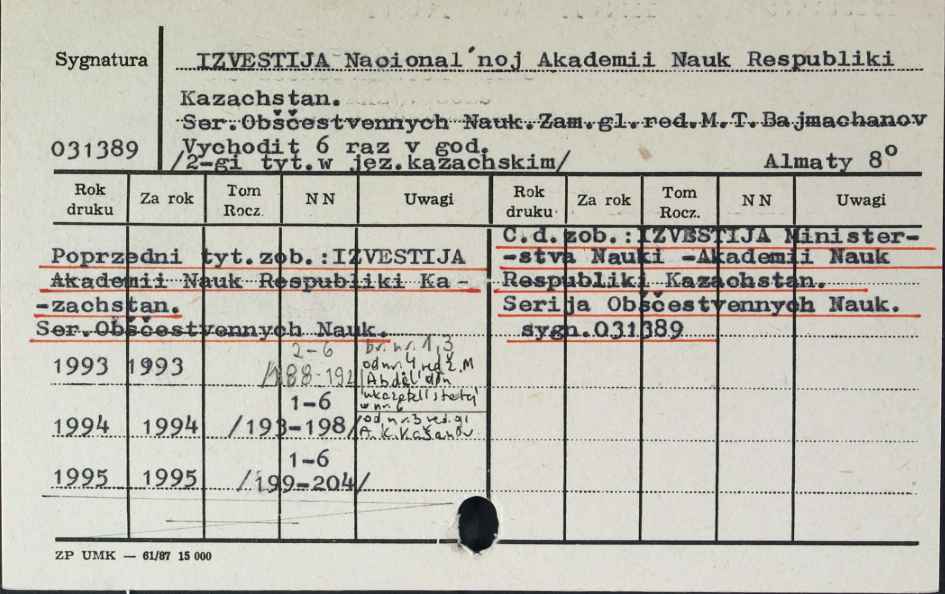 Sygnatura
IZVESTIJA Nacional'noj Akademii Nauk Respubliki
Kazachstan.
Ser.Obščestvennych Nauk.Zam.gl.red.M.T.Bajmachanov
031389
Vychodit 6 raz v god.
/2-gi tyt.w jęz.kazachskim/ Almaty 8°
Rok druku Za rok Tom Rocz. NN Uwagi Rok druku Za rok Tom Rocz. NN Uwagi
Poprzedni tyt.zob.:IZVESTIJA
Akademii Nauk Respubliki Ka-
-zachstan.
Ser.Obščestvennych Nauk.
C.d.zob.:IZVESTIJA Minister-
-stva Nauki -Akademii Nauk
Respubliki Kazachstan.
Serija Obščestvennych Nauk.
sygn.031389
1993 1993 2-6 /188-192
br. nr. 1,3
od nr. 4 red. Ž.M
Abdil'din
w nr. 6
1994 1994 1-6 /193-198/
od nr 3 red. gl
A.K.Kašanov
1995 1995 1-6 /199-204/
ZP UMK — 61/87 15 000